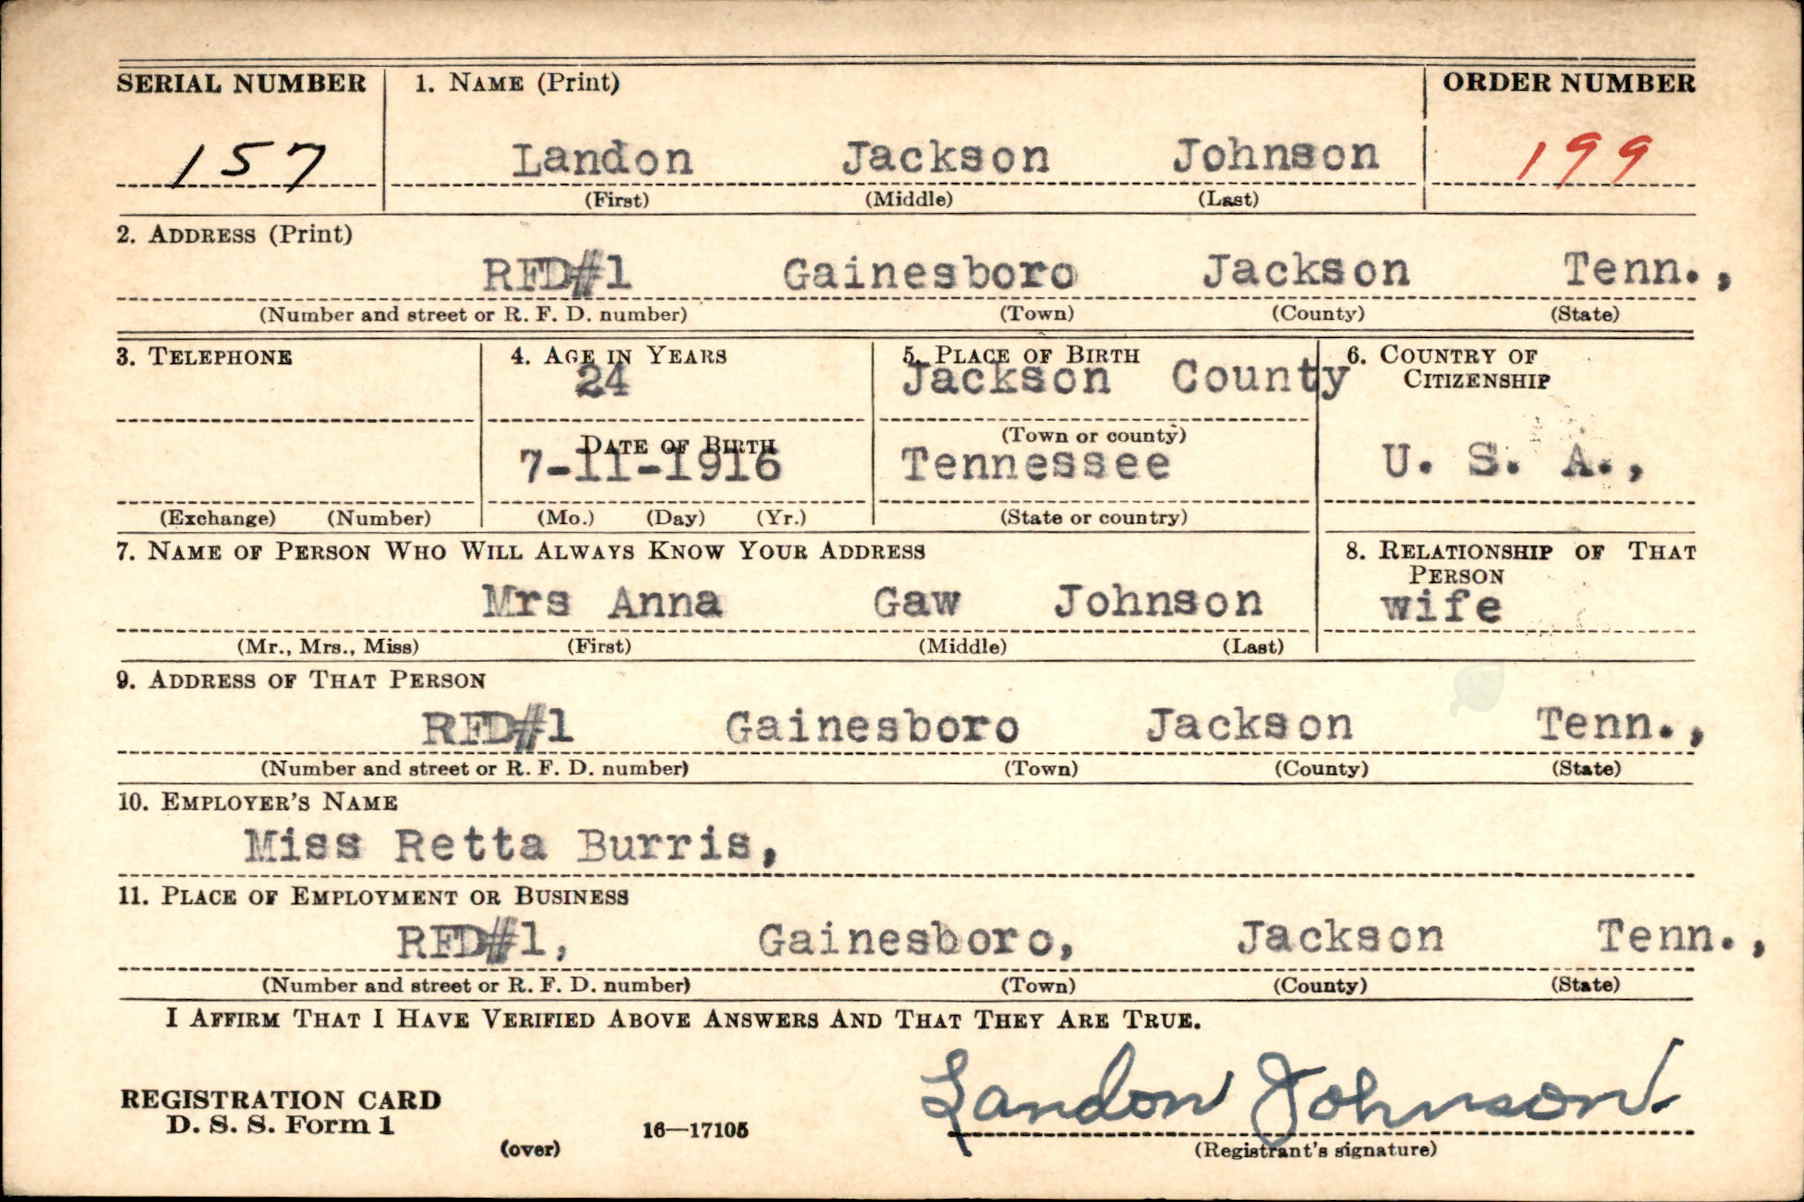 SERIAL NUMBER 1. NAME (Print) ORDER NUMBER
157 Landon Jackson Johnson 199
(First) (Middle) (Last)
2. ADDRESS (Print)
RFD#1 Gainesboro Jackson Tenn.,
(Number and street or R. F. D. number) (Town) (County) (State)
3. TELEPHONE 4. AGE IN YEARS 5. PLACE OF BIRTH 6. COUNTRY OF
24 Jackson County CITIZENSHIP
DATE OF BIRTH (Town or county)
7-11-1916 Tennessee U. S. A.,
(Exchange) (Number) (Mo.) (Day) (Yr.) (State or country)
7. NAME OF PERSON WHO WILL ALWAYS KNOW YOUR ADDRESS 8. RELATIONSHIP OF THAT
PERSON
Mrs Anna Gaw Johnson wife
(Mr., Mrs., Miss) (First) (Middle) (Last)
9. ADDRESS OF THAT PERSON
RFD#1 Gainesboro Jackson Tenn.,
(Number and street or R. F. D. number) (Town) (County) (State)
10. EMPLOYER'S NAME
Miss Retta Burris,
11. PLACE OF EMPLOYMENT OR BUSINESS
RFD#1, Gainesboro, Jackson Tenn.,
(Number and street or R. F. D. number) (Town) (County) (State)
I AFFIRM THAT I HAVE VERIFIED ABOVE ANSWERS AND THAT THEY ARE TRUE.
REGISTRATION CARD Landon Johnson.
D. S. S. Form 1
(over) 16—17105 (Registrant's signature)